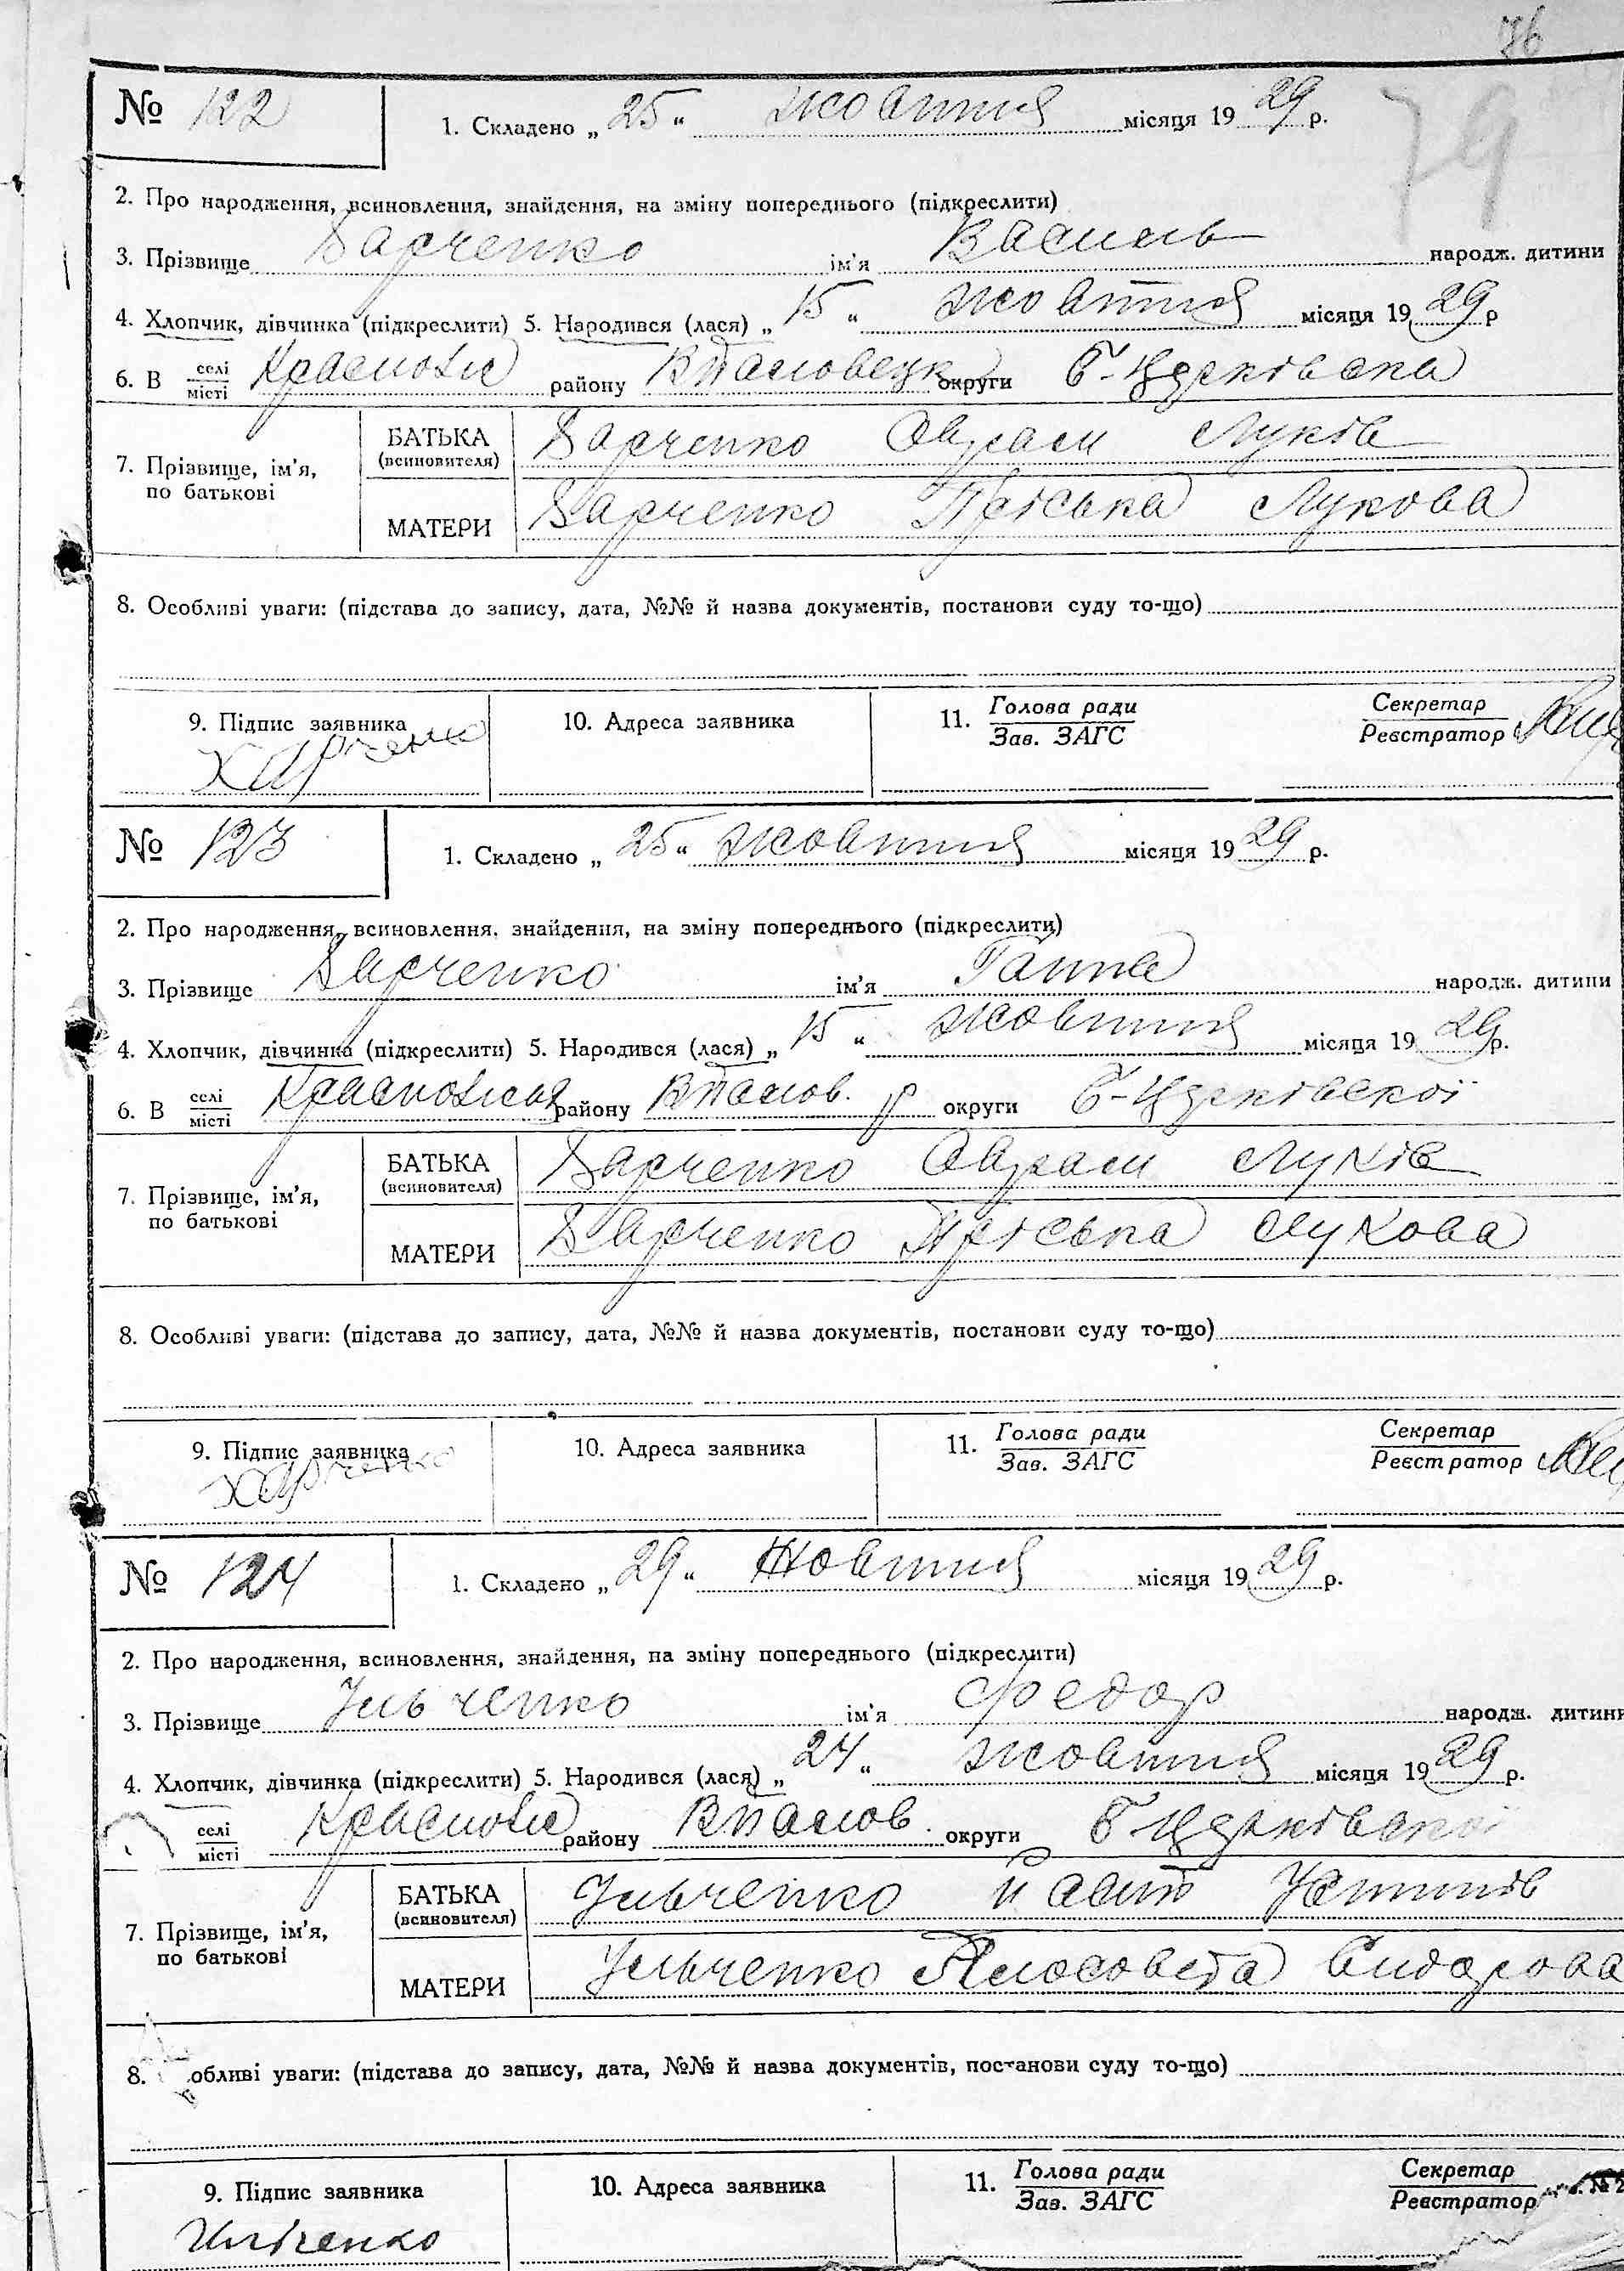 76
79
№ 122
1. Складено „ 25 “ жовтня місяця 19 29 р.
2. Про народження, всиновлення, знайдення, на зміну попереднього (підкреслити)
3. Прізвище Харченко ім'я Василь народж. дитини
4. Хлопчик, дівчинка (підкреслити) 5. Народився (лася) „ 15 “ жовтня місяця 19 29 р
6. В селі місті району округи Б-Церківська
7. Прізвище, ім'я, по батькові
БАТЬКА (всиновителя) Харченко Оврам Луків
МАТЕРИ Харченко Пріська Лукова
8. Особливі уваги: (підстава до запису, дата, №№ й назва документів, постанови суду то-що)
9. Підпис заявника 10. Адреса заявника 11. Голова ради Зав. ЗАГС Секретар Реєстратор
Харченко
№ 123
1. Складено „ 25 “ жовтня місяця 19 29 р.
2. Про народження, всиновлення, знайдення, на зміну попереднього (підкреслити)
3. Прізвище Харченко ім'я Ганна народж. дитини
4. Хлопчик, дівчинка (підкреслити) 5. Народився (лася) „ 15 “ жовтня місяця 19 29 р.
6. В селі місті району округи Б-Церківської
7. Прізвище, ім'я, по батькові
БАТЬКА (всиновителя) Харченко Оврам Луків
МАТЕРИ Харченко Пріська Лукова
8. Особливі уваги: (підстава до запису, дата, №№ й назва документів, постанови суду то-що)
9. Підпис заявника 10. Адреса заявника 11. Голова ради Зав. ЗАГС Секретар Реєстратор
Харченко
№ 124
1. Складено „ 29 “ Жовтня місяця 19 29 р.
2. Про народження, всиновлення, знайдення, на зміну попереднього (підкреслити)
3. Прізвище Ільченко ім'я Федор народж. дитини
4. Хлопчик, дівчинка (підкреслити) 5. Народився (лася) „ 24 “ жовтня місяця 19 29 р.
селі місті району округи Б-Церківської
7. Прізвище, ім'я, по батькові
БАТЬКА (всиновителя) Ільченко Устинів
МАТЕРИ Ільченко Сидорова
8. обливі уваги: (підстава до запису, дата, №№ й назва документів, постанови суду то-що)
9. Підпис заявника 10. Адреса заявника 11. Голова ради Зав. ЗАГС Секретар Реєстратор